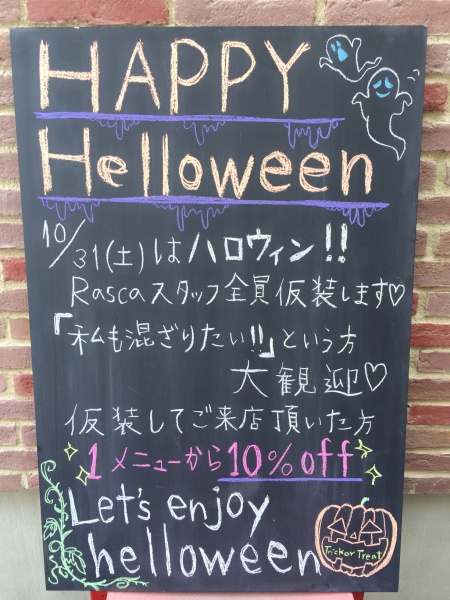 HAPPY
Helloween
10/31(土)はハロウィン!!
Rascaスタッフ全員仮装します♡
「私も混ざりたい!!」という方
大観迎♡
仮装してご来店頂いた方
1メニューから10%off
Let's enjoy
helloween
Trick or Treat